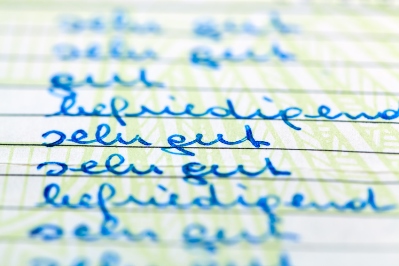 sehr gut
sehr gut
gut
befriedigend
sehr gut
sehr gut
befriedigend
sehr gut
sehr gut